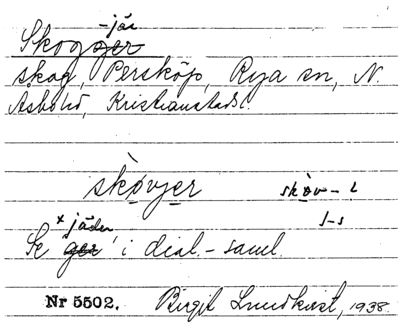 -jär
Skogger
skog, Persköp, Rya sn, N.
Åsbo hd, Kristianstads l.
skòvjer skòv- l
s-s
× jäder
Se ger i dial.-saml.
Nr 5502. Birgit Lundkvist, 1938.